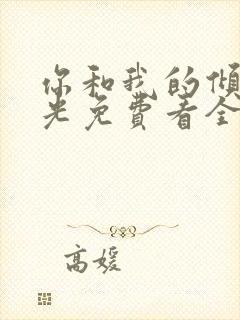 你和我的倾
光免费看全
高媛